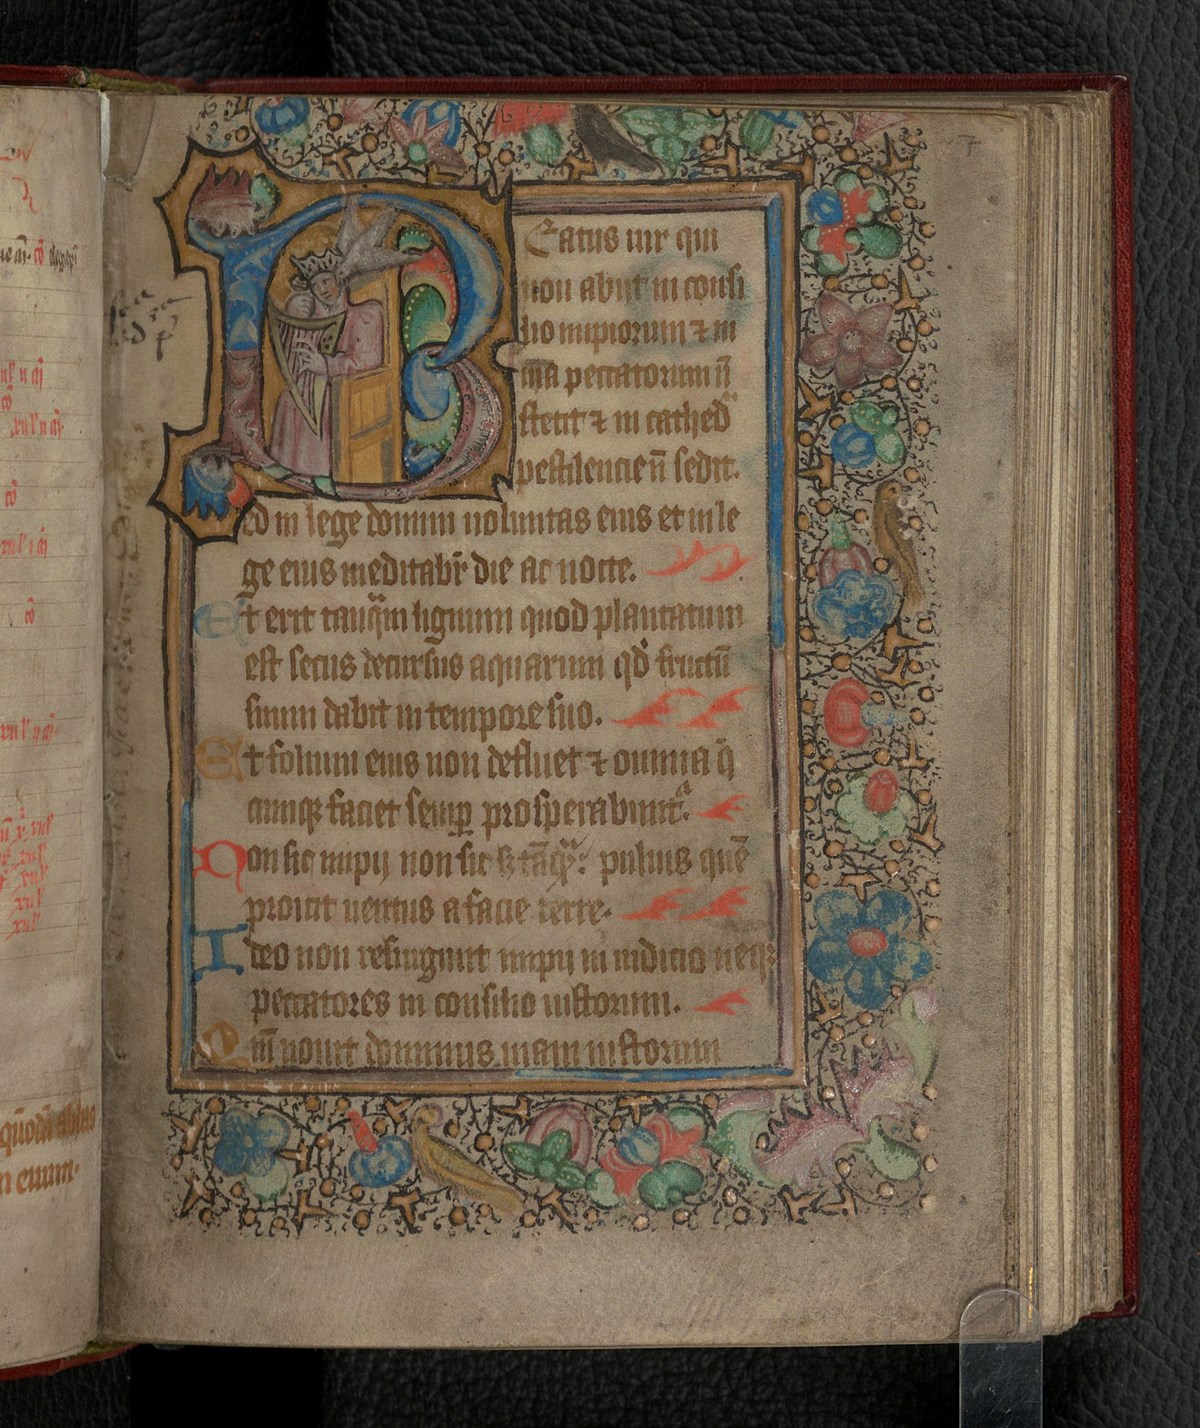 Beatus uir qui
non abijt in consi
lio impiorum ⁊ in
uia peccatorum nō
stetit ⁊ in cathedᵃ
pestilencie nō sedit.
Sed in lege domini uoluntas eius et in le
ge eius meditabr̄ die ac nocte.
Et erit tanqͣm lignum quod plantatum
est secus decursus aquarum qd̓ fructū
suum dabit in tempore suo.
Et folium eius non defluet ⁊ omnia q̄
cumqꝫ faciet semꝑ prosperabuntᷣ.
Non sic impij non sic sꝫ tāqᷓ: puluis quē
proicit uentus a facie terre.
Ideo non resurgunt impij in iudicio neqꝫ
peccatores in consilio iustorum.
Qm̄ nouit dominus uiam iustorum
7